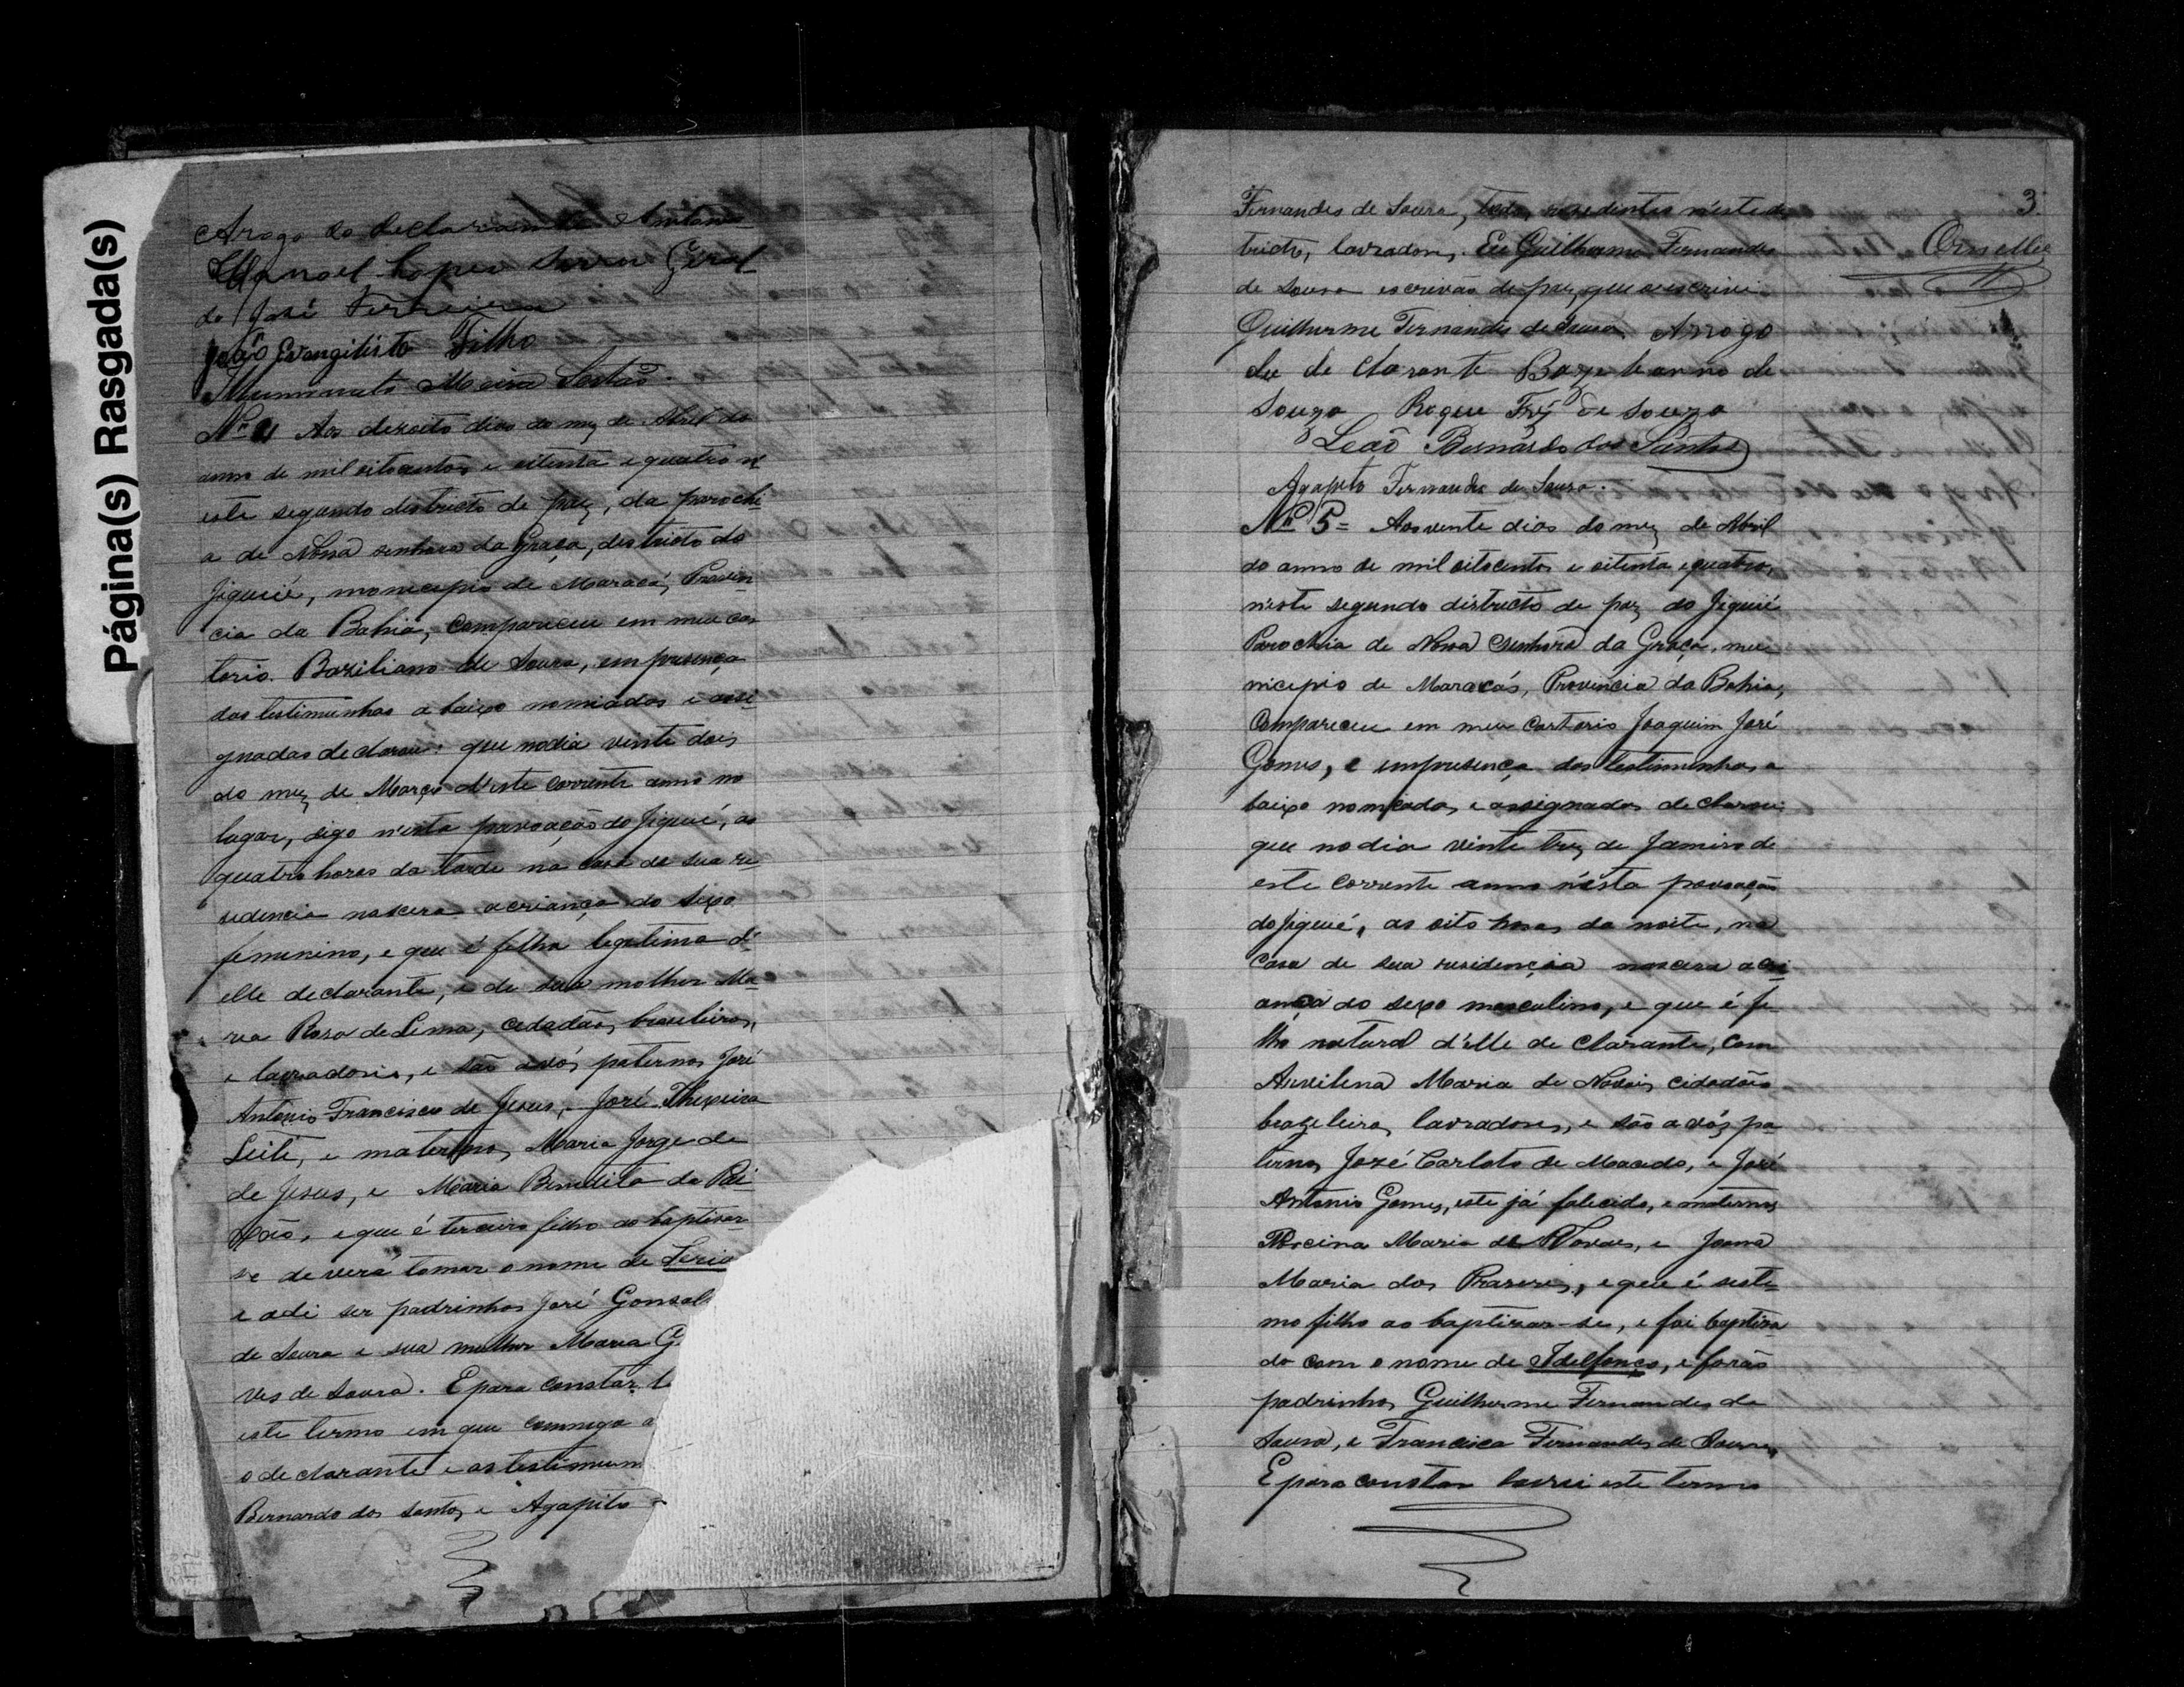 Página(s) Rasgada(s)
Arogo do declarante Antonio
Manoel Lopes Geral
do José Ferreira
João Evangilisto Filho
Meira Sertão.
Nº 4 Aos dezoito dias do mez de Abril do
anno de mil oitocentos e oitenta e quatro n'
este segundo districto de paz, da parochi-
a de Nossa senhora da Graça, districto do
Jiquié, monicepio de Maracá, Provin-
cia da Bahia, compareceu em meu car
torio. Baziliano de Soura, em presença
das testimunhas a baixo nomiadas e assi-
gnadas declarou: que nodia vinte dois
do mez de Março d'este corrente anno no
lugar, digo n'esta pavoação do Jiquié, as
quatro horas da tarde na casa de sua re
sidencia nascera acriança do sexo
femenino, e que é filha legitima d'
elle declarante, e de sua molher Ma-
ria Rosa de Lima, cidadãos brasileiros,
e lavradoris, e são avós paternos José
Antonio Francisco de Jesus, e José Theixeira
Leite, e maternos, Maria Jorge de
de Jesus, e Maria Benedita da Pai-
xão, e que é terceiro filho ao baptisar-
se deverá tomar o nome de
e adi ser padrinhos José Gonsal
de Soura e sua mulher Maria G
ves de Soura. E para constar l
este termo em que commigo a
o declarante e as testimun
Bernardo dos Santos e Agapito
3
Ornellas
Fernandes de Soura, todos residentes n'este dis
tricto, lavradores. Eu Guilherme Fernandes
de Sousa escrivão de paz, que suescrivi
Guilherme Fernandes de Sousa Arrogo
du de clarante Bazeleanno de
Souza Roque Frz de Souza
Leaõ Bernardo dos Santos
Agapito Fernandes de Soura.
Nº 5= Aos vente dias do mez de Abril
do anno de mil oitocentos e oitenta equatro,
n'este segundo districto de paz do Jiquié
Parochia de Nossa Senhora da Graça, mu-
nicepio de Maracás, Provincia da Bahia,
Compareceu em meu Cartorio Joaquim José
Gomes, e empresença das testimunhas a
baixo nomeadas, e assignadas declarou:
que no dia vinte trez de Janeiro d
este corrente anno n'esta pavoação
do Jiquié, as oito horas da noite, na
Casa de sua residencia nascera acri
ança do sexo mascolino, e que é fi
lho natural d'elle de clarante, com
Auvilina Maria de Novais cidadãos
brazeleiros lavradores, e são avós pa
ternos José Carloto de Macedo, e José
Antonio Gomes, este já falecido, e maternos
Maria de Novaes, e Joana
Maria dos Praseres, e que é seste
mo filho ao baptisar-se, e foi baptisa
do com o nome de Idelfonço, e forão
padrinhos Guilherme Fernandes de
Sousa, e Francisca Fernandes de Sousa,
E para constar lavrei este termo